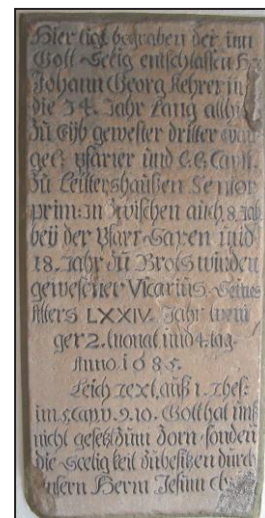 Hier ligt begraben der inn
Gott Seelig entschlaffen H:
Johann Georg Kehrer in
die 34. Jahr lang allhie
zu Eyb gewester dritter Evan
gel: Pfarrer und C. C. Capit.
zu Leütershaußen Senior
prim: in zwischen auch 8. Jah
bey der Pfarr Saxen und
18. Jahr zu Brotswinden
gewesener Vicarius. Seines
Alters LXXIV. Jahr weni
ger 2. monat und 4. tag.
Anno 1685.
Leich Text auß 1. Thes:
im 5. Cap. v. 9. 10. Gott hat unß
nicht gesetzt zum Zorn, sondern
die Seeligkeit zu besitzen durch
unsern Herrn Jesum